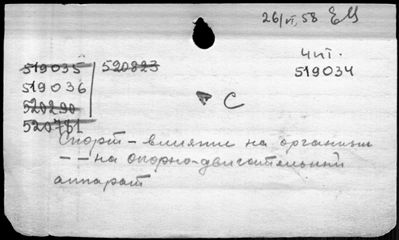 26/VI, 58 ЕЦ
чит.
519035 520823
519034
519036
520290
С
520751
Спорт – влияние на организм
– – на опорно-двигательный
аппарат